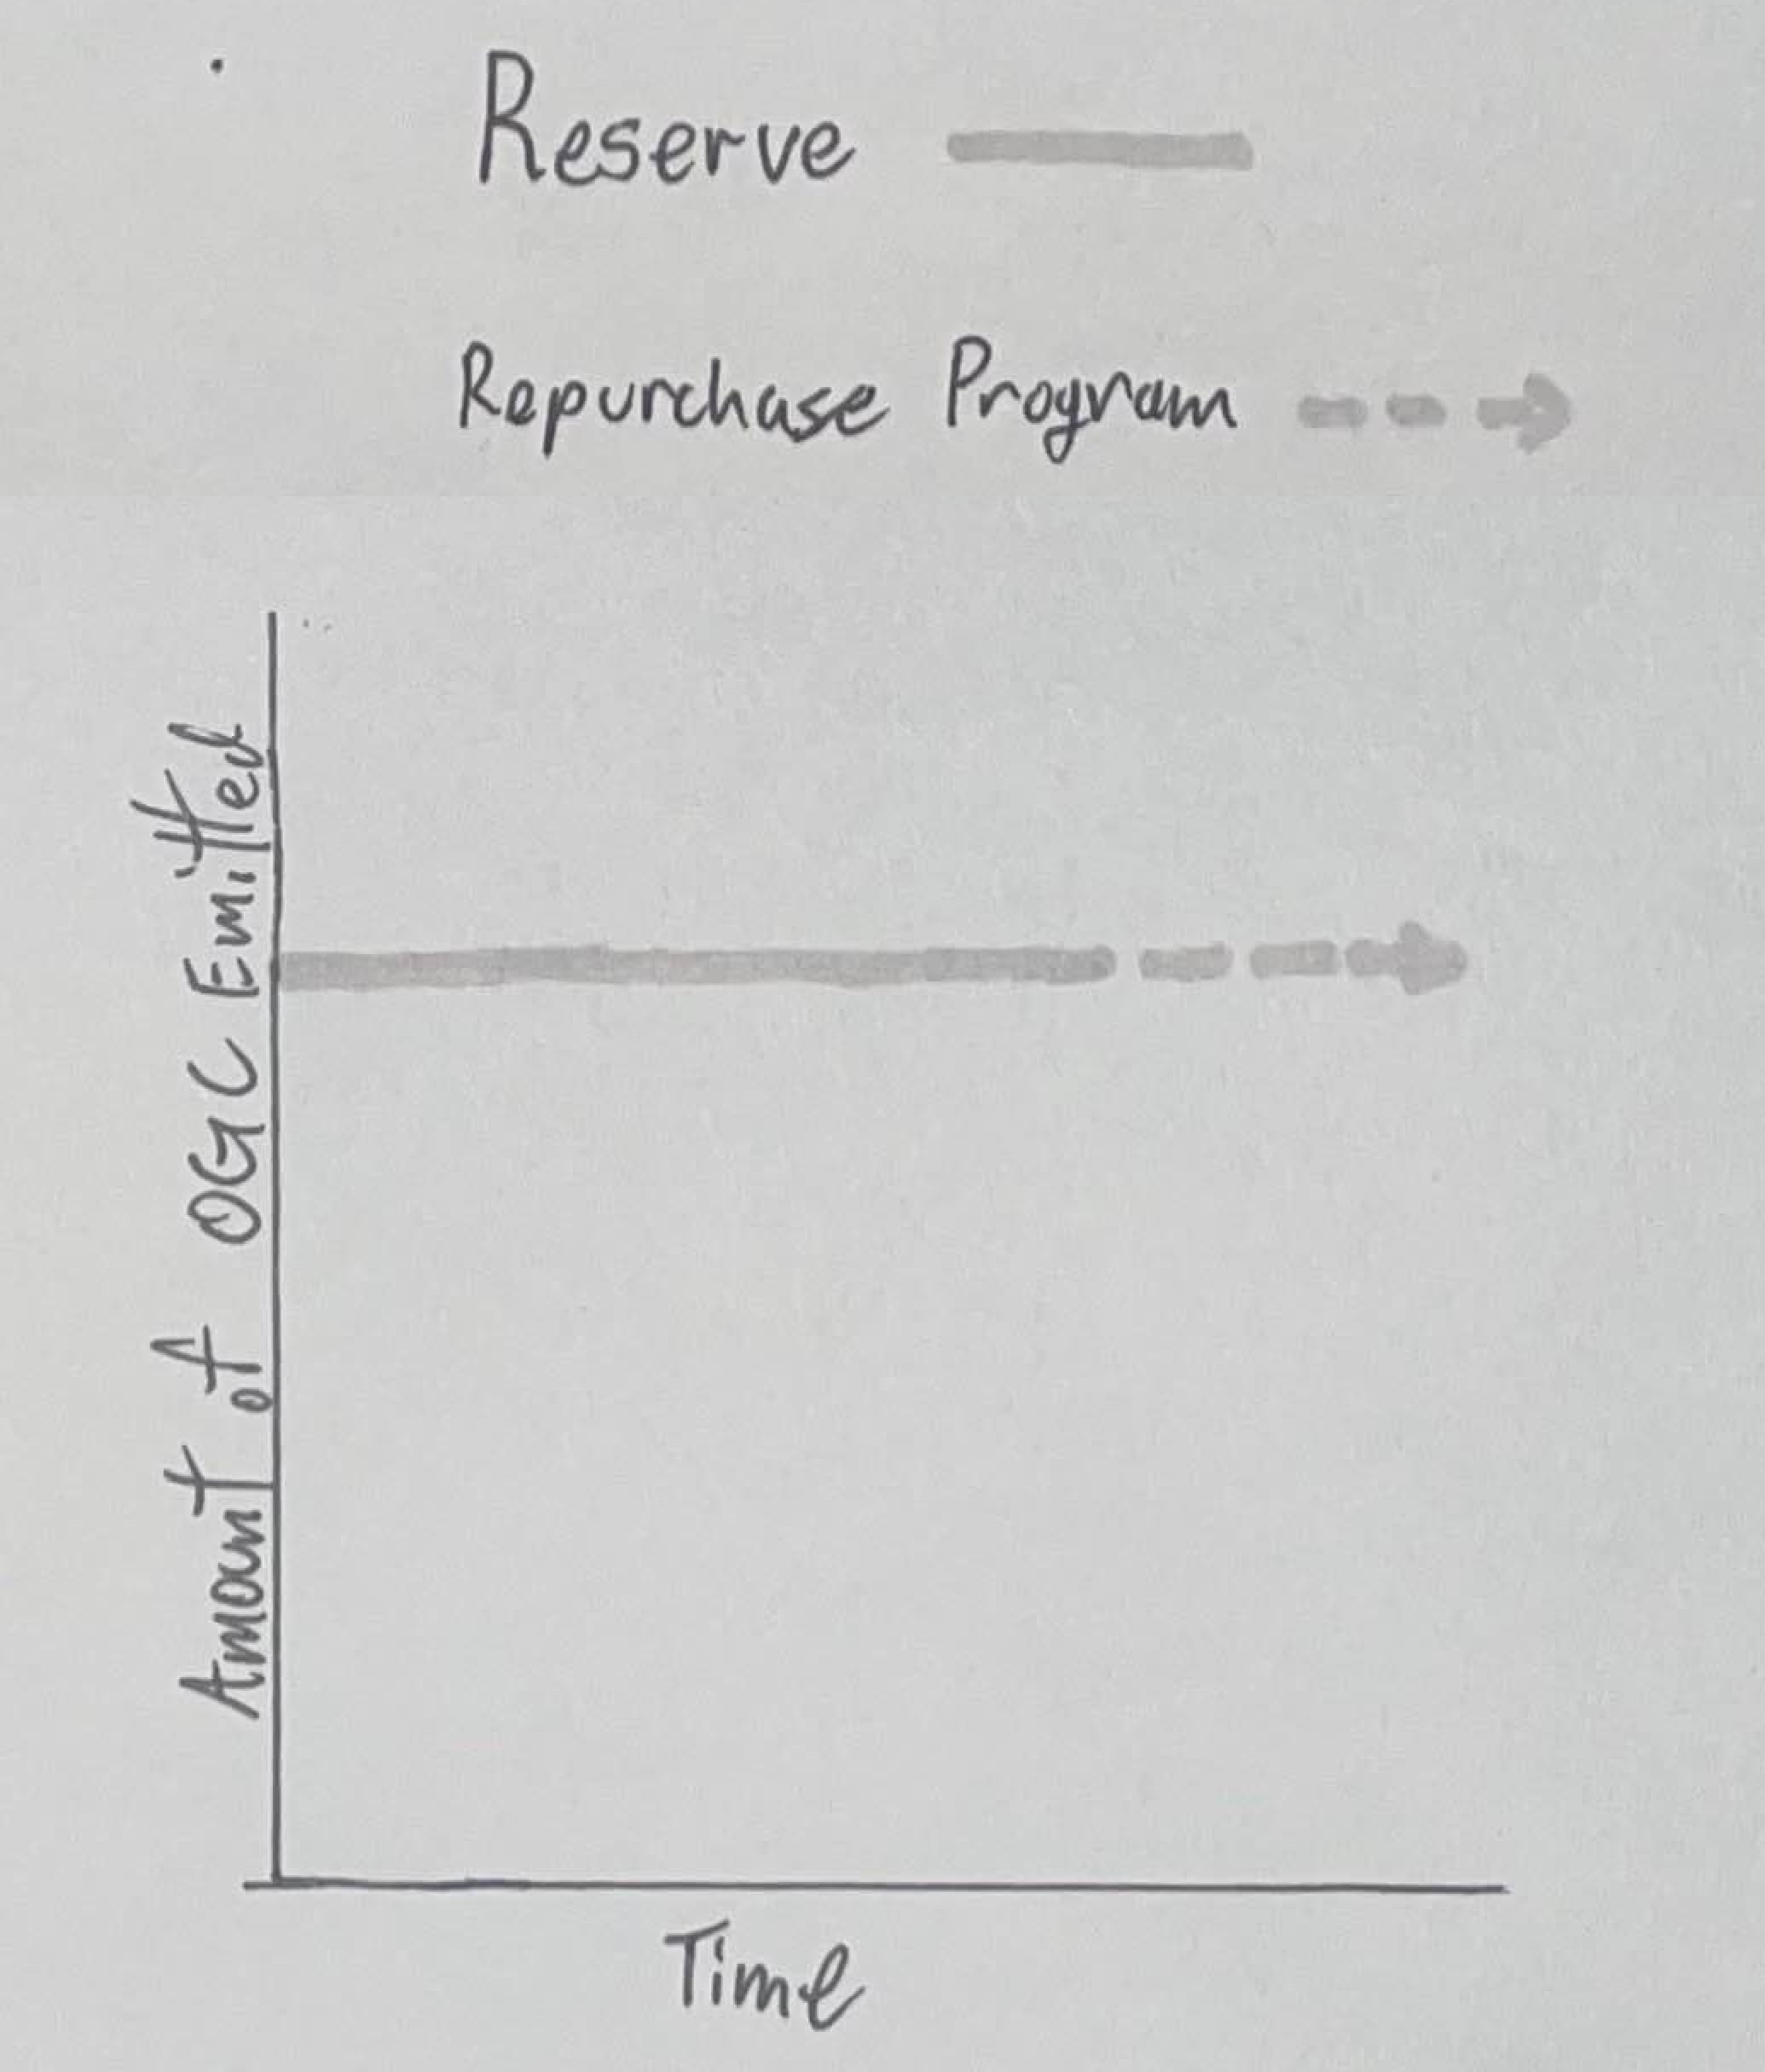 Reserve
Repurchase Program
Amount of OGC Emitted
Time